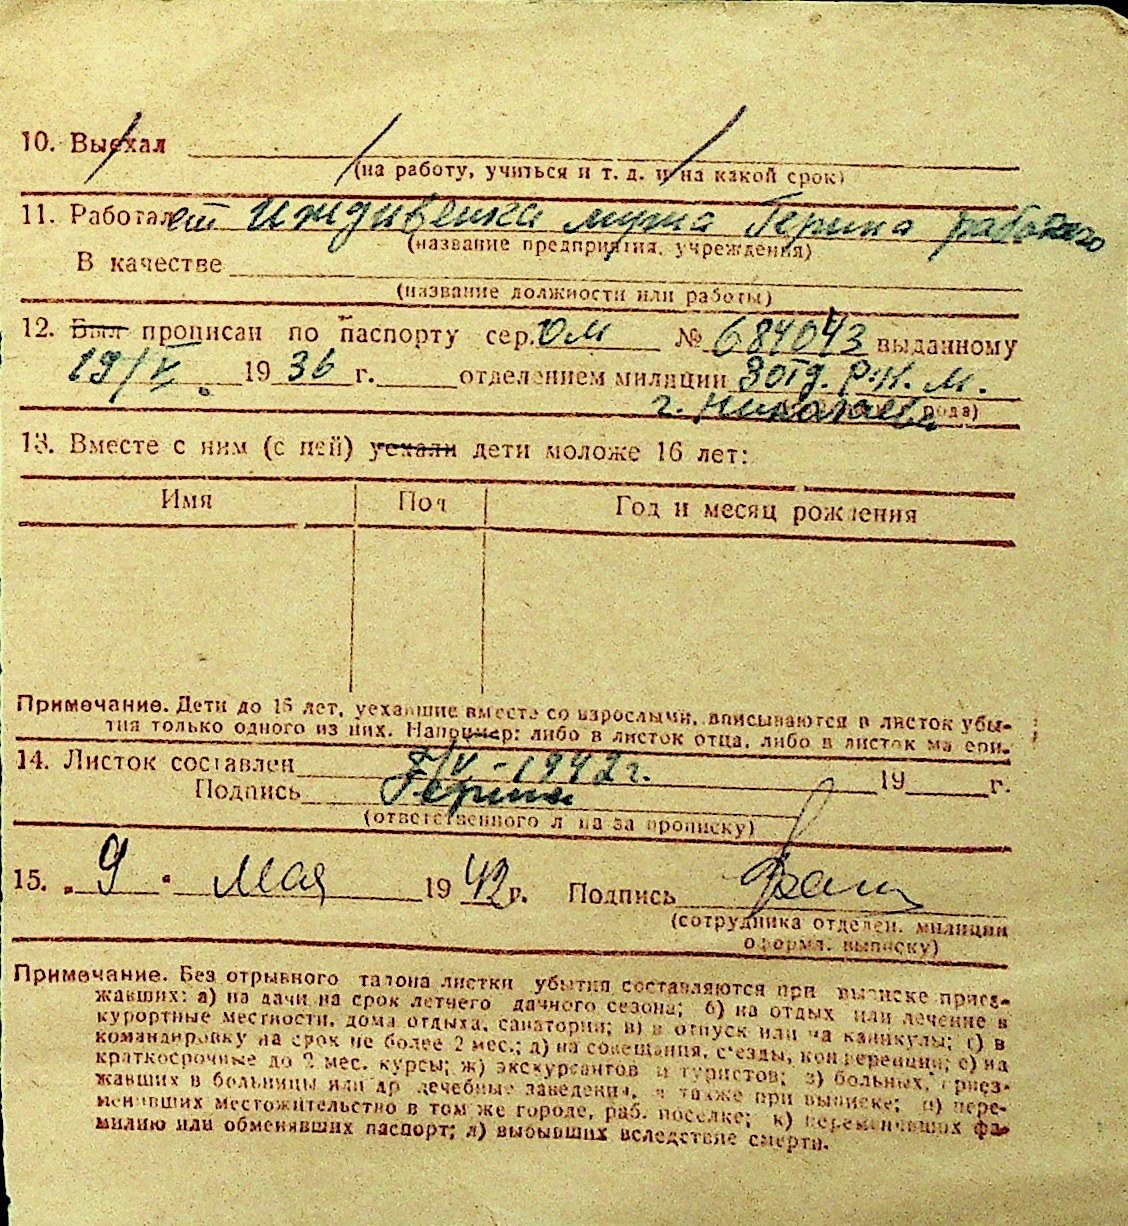 10. Выехал
(на работу, учиться и т. д. и на какой срок)
11. Работает Иждивенка мужа Герина рабочего
(название предприятия, учреждения)
В качестве
(название должности или работы)
12. Был прописан по паспорту сер. ОМ № 684043 выданному
19/V 1936 г. отделением милиции 3 отд. Р.К.М.
г. Николаева
13. Вместе с ним (с ней) уехали дети моложе 16 лет:
Имя Пол Год и месяц рождения
Примечание. Дети до 16 лет, уехавшие вместе со взрослыми, вписываются в листок убы-
тия только одного из них. Например: либо в листок отца, либо в листок матери.
14. Листок составлен 8/V-1942 г. 19 г.
Подпись Герина
(ответственного лица за прописку)
15. „9“ Мая 1942 г. Подпись
(сотрудника отделен. милиции
оформл. выписку)
Примечание. Без отрывного талона листки убытия составляются при выписке приез-
жавших: а) на дачи на срок летнего дачного сезона; б) на отдых или лечение в
курортные местности, дома отдыха, санатории; в) в отпуск или на каникулы; г) в
командировку на срок не более 2 мес.; д) на совещания, съезды, конференции; е) на
краткосрочные до 2 мес. курсы; ж) экскурсантов и туристов; з) больных, приез-
жавших в больницы или др. лечебные заведения, а также при выписке; и) пере-
менивших местожительство в том же городе, раб. поселке; к) переменивших фа-
милию или обменявших паспорт; л) выбывших вследствие смерти.